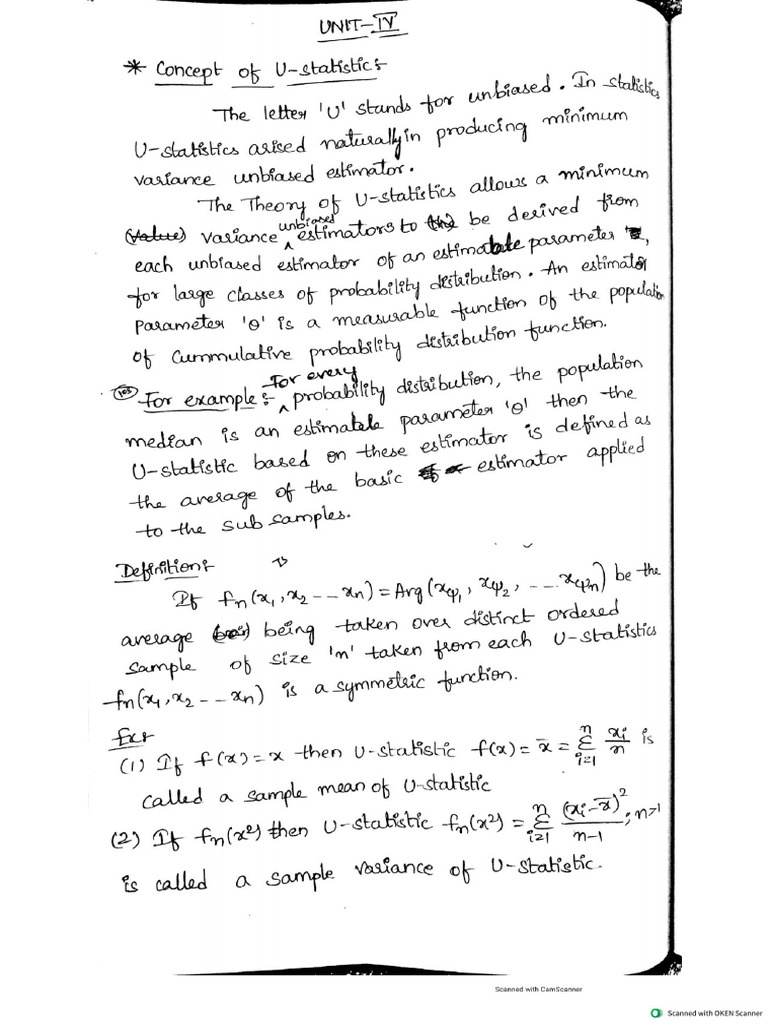 UNIT-IV
* Concept of U-statistic:-
The letter 'U' stands for unbiased. In statistics
U-statistics arised naturally in producing minimum
variance unbiased estimator.
The Theory of U-statistics allows a minimum
(value) variance unbiased estimators to be derived from
each unbiased estimator of an estimatable parameter,
for large classes of probability distribution. An estimator
parameter 'θ' is a measurable function of the population
of Cummulative probability distribution function.
For example:- For every probability distribution, the population
median is an estimatele parameter 'θ' then the
U-statistic based on these estimator is defined as
the average of the basic estimator applied
to the sub samples.
Definition:-
If fn(x1, x2 --- xn) = Arg(xφ1, xφ2, --- xφn) be the
average being taken over distinct ordered
sample of size 'n' taken from each U-statistics
fn(x1, x2 --- xn) is a symmetric function.
Ex:-
(1) If f(x) = x then U-statistic f(x) = x̄ = Σ_{i=1}^{n} xi/n is
called a sample mean of U-statistic
(2) If fn(x²) then U-statistic fn(x²) = Σ_{i=1}^{n} (xi-x̄)²/n-1 ; n>1
is called a sample variance of U-statistic.
Scanned with CamScanner
Scanned with OKEN Scanner